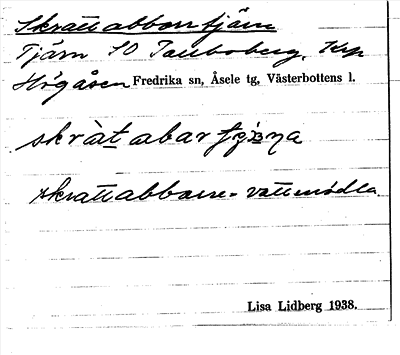 Skrattabborrtjärn
Tjärn SO Tallboberg, Krp
Högåsen Fredrika sn, Åsele tg, Västerbottens l.
skràt abar
skrattabborre- vattusödla
Lisa Lidberg 1938.